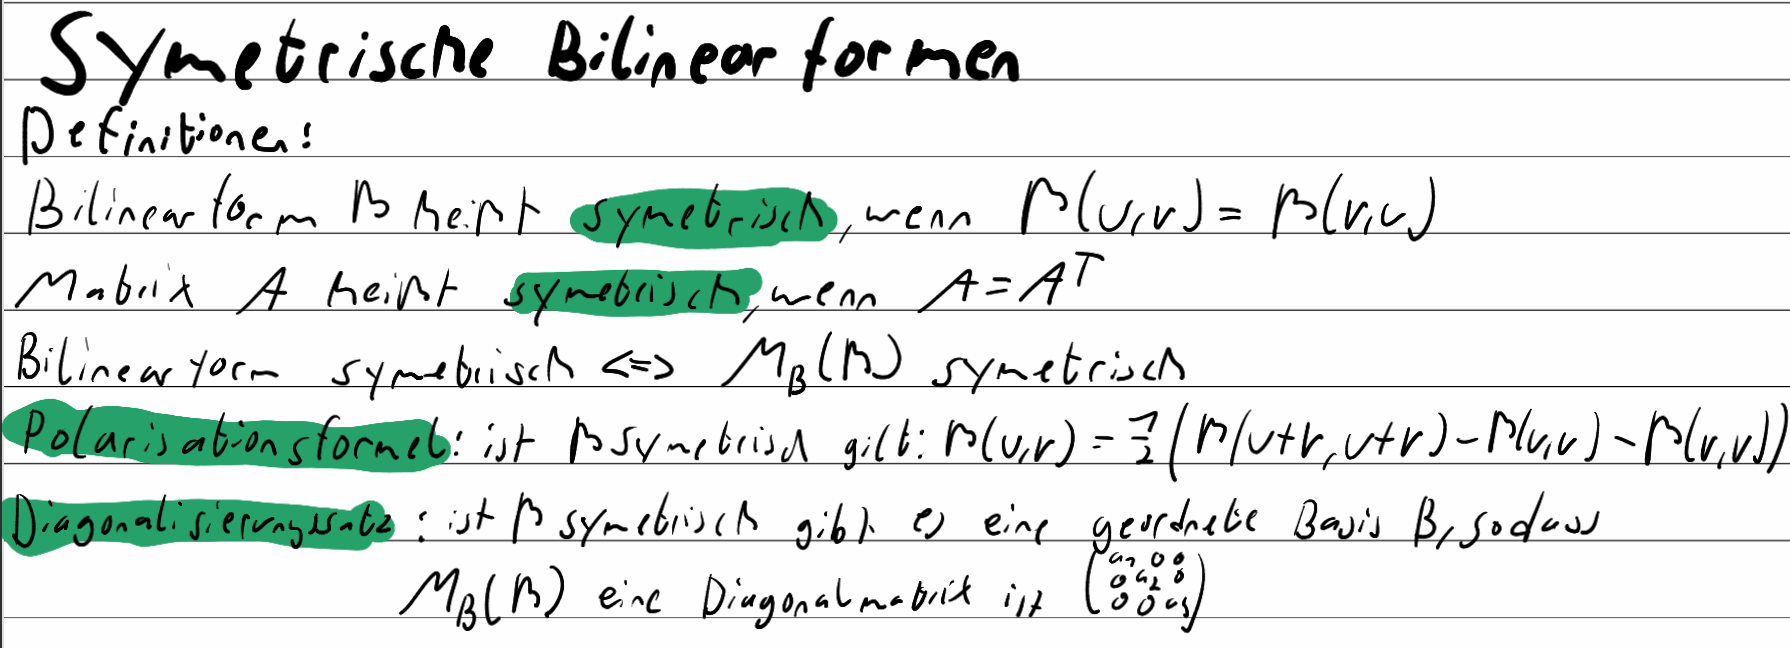 Symetrische Bilinearformen
Definitionen:
Bilinearform β heißt symetrisch, wenn β(u,v) = β(v,u)
Matrix A heißt symetrisch, wenn A = A^T
Bilinearform symetrisch <=> M_B(β) symetrisch
Polarisationsformel: ist β symetrisch gilt: β(u,v) = 1/2 (β(u+v, u+v) - β(u,u) - β(v,v))
Diagonalisierungssatz: ist β symetrisch gibt es eine geordnete Basis B, sodass
M_B(β) eine Diagonalmatrix ist (a1 0 0
0 a2 0
0 0 a3)